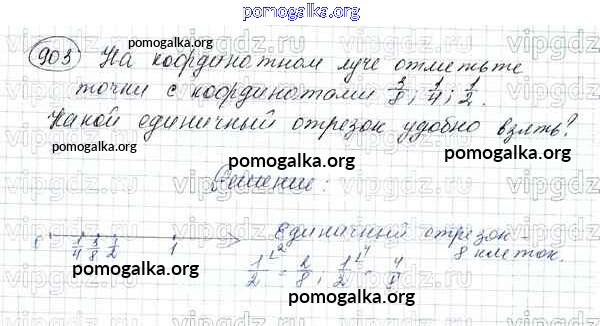 pomogalka.org
903 На координатном луче отметьте
точки с координатами 3/8; 1/4; 1/2.
Какой единичный отрезок удобно взять?
pomogalka.org
pomogalka.org
pomogalka.org
pomogalka.org
Решение:
1/4 3/8 1/2 1
Единичный отрезок -
8 клеток.
1/2 = 2/8; 1/2 = 4/8
pomogalka.org
pomogalka.org
vipgdz.ru